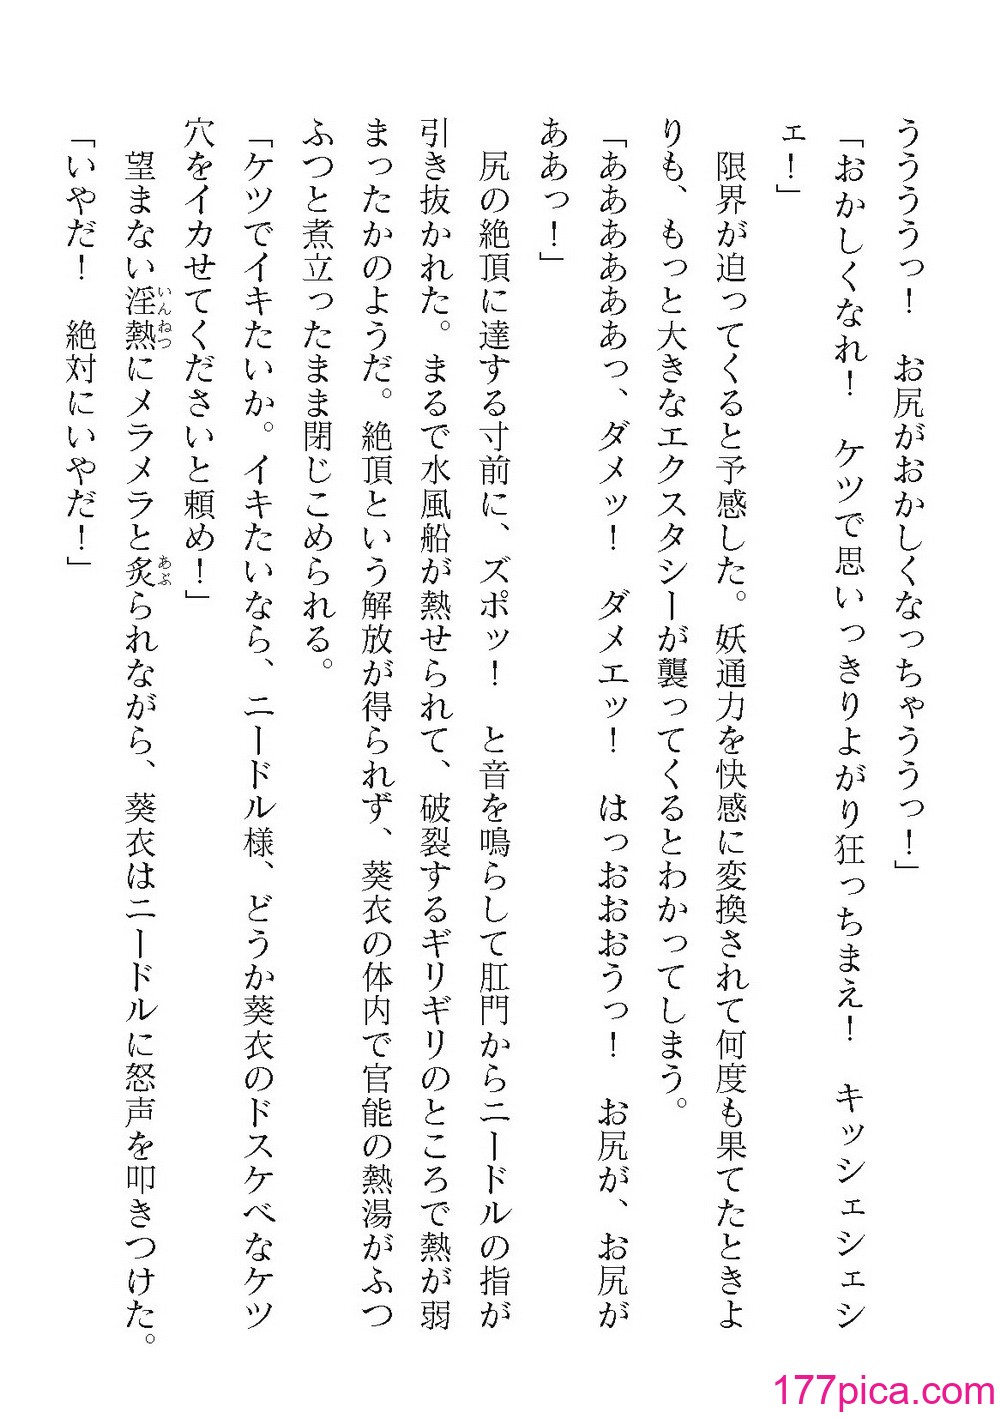 うううっ！　お尻がおかしくなっちゃううっ！」
「おかしくなれ！　ケツで思いっきりよがり狂っちまえ！　キッシェシェシ
ェ！」
限界が迫ってくると予感した。妖通力を快感に変換されて何度も果てたときよ
りも、もっと大きなエクスタシーが襲ってくるとわかってしまう。
「ああああああっ、ダメッ！　ダメエッ！　はっおおおうっ！　お尻が、お尻が
ああっ！」
尻の絶頂に達する寸前に、ズポッ！　と音を鳴らして肛門からニードルの指が
引き抜かれた。まるで水風船が熱せられて、破裂するギリギリのところで熱が弱
まったかのようだ。絶頂という解放が得られず、葵衣の体内で官能の熱湯がふつ
ふつと煮立ったまま閉じこめられる。
「ケツでイキたいか。イキたいなら、ニードル様、どうか葵衣のドスケベなケツ
穴をイカせてくださいと頼め！」
望まない淫熱（いんねつ）にメラメラと炙（あぶ）られながら、葵衣はニードルに怒声を叩きつけた。
「いやだ！　絶対にいやだ！」
177pica.com